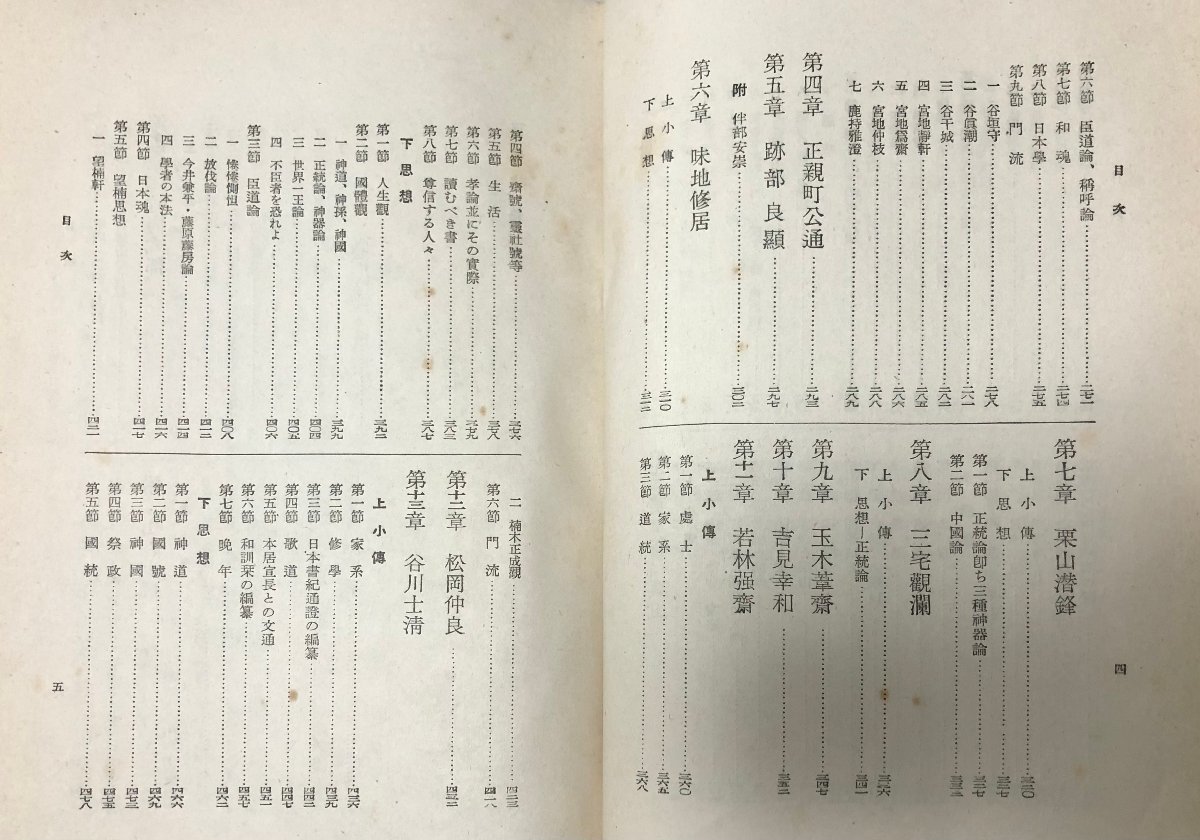 目次
第六節 臣道論、稱呼論…………二七一
第七節 和魂…………二七四
第八節 日本學…………二七五
第九節 門流
一 谷垣守…………二七八
二 谷眞潮…………二八一
三 谷干城…………二八二
四 宮地靜軒…………二八五
五 宮地爲齋…………二八六
六 宮地仲枝…………二八八
七 鹿持雅澄…………二八九
第四章 正親町公通…………二九三
第五章 跡部良顯…………二九七
附 伴部安崇…………三〇二
第六章 味地修居
上 小傳…………三一〇
下 思想…………三一二
第七章 栗山潜鋒
上 小傳…………三二〇
下 思想…………三二七
第一節 正統論卽ち三種神器論…………三二七
第二節 中國論…………三三二
第八章 三宅觀瀾
上 小傳…………三三六
下 思想―正統論…………三四一
第九章 玉木葦齋…………三四七
第十章 吉見幸和…………三五二
第十一章 若林强齋
上 小傳
第一節 處士…………三六〇
第二節 家系…………三六五
第三節 道統…………三六八
四
第四節 齋號、靈社號等…………三七六
第五節 生活…………三七八
第六節 孝論並にその實際…………三七九
第七節 讀むべき書…………三八三
第八節 尊信する人々…………三八七
下 思想
第一節 人生觀…………三九二
第二節 國體觀
一 神道、神孫、神國…………三九九
二 正統論、神器論…………四〇四
三 世界一王論…………四〇五
四 不臣者を恐れよ…………四〇六
第三節 臣道論
一 惓惓惻怛…………四〇八
二 放伐論…………四一二
三 今井兼平・藤原藤房論…………四一四
四 學者の本法…………四一六
第四節 日本魂…………四一七
第五節 望楠思想
一 望楠軒…………四二一
目次
二 楠木正成觀…………四二三
第六節 門流…………四二八
第十二章 松岡仲良…………四三二
第十三章 谷川士淸
上 小傳
第一節 家系…………四三六
第二節 修學…………四三九
第三節 日本書紀通證の編纂…………四四二
第四節 歌道…………四四七
第五節 本居宣長との文通…………四五一
第六節 和訓栞の編纂…………四五七
第七節 晩年…………四六二
下 思想
第一節 神道…………四六六
第二節 國號…………四六九
第三節 神國…………四七三
第四節 祭政…………四七五
第五節 國統…………四七八
五